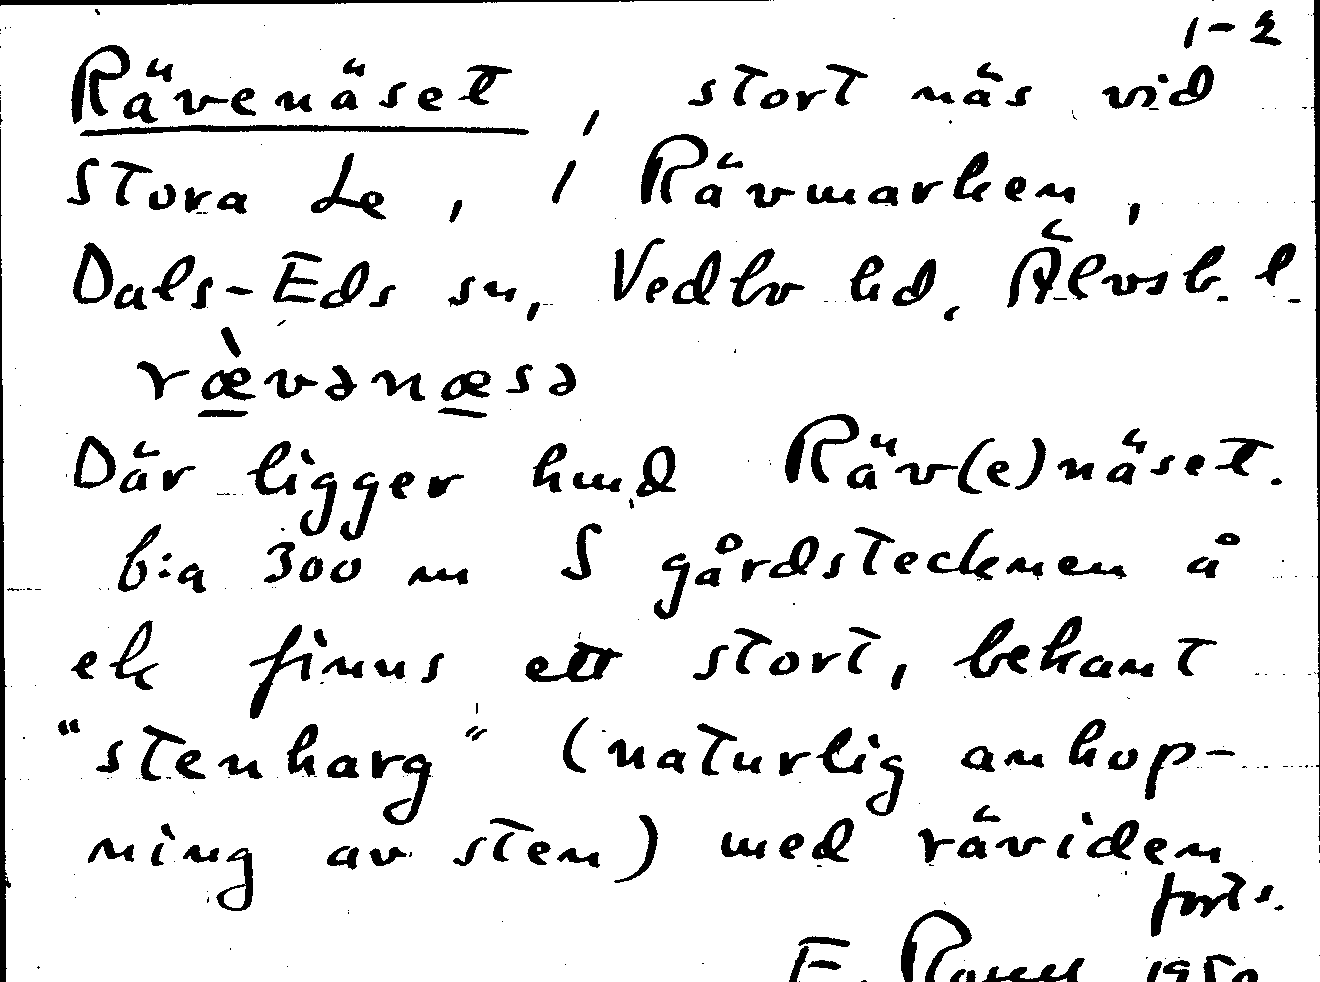 1-2
Rävenäset, stort näs vid
Stora Le, i Rävmarken,
Dals-Eds sn, Vedbo hd, Älvsb. l.
rævənæsə
Där ligger hmd Räv(e)näset.
b:a 300 m S gårdstecknen å
ek finns ett stort, bekant
"stenharg" (naturlig anhop-
ning av sten) med räviden
forts.
F.